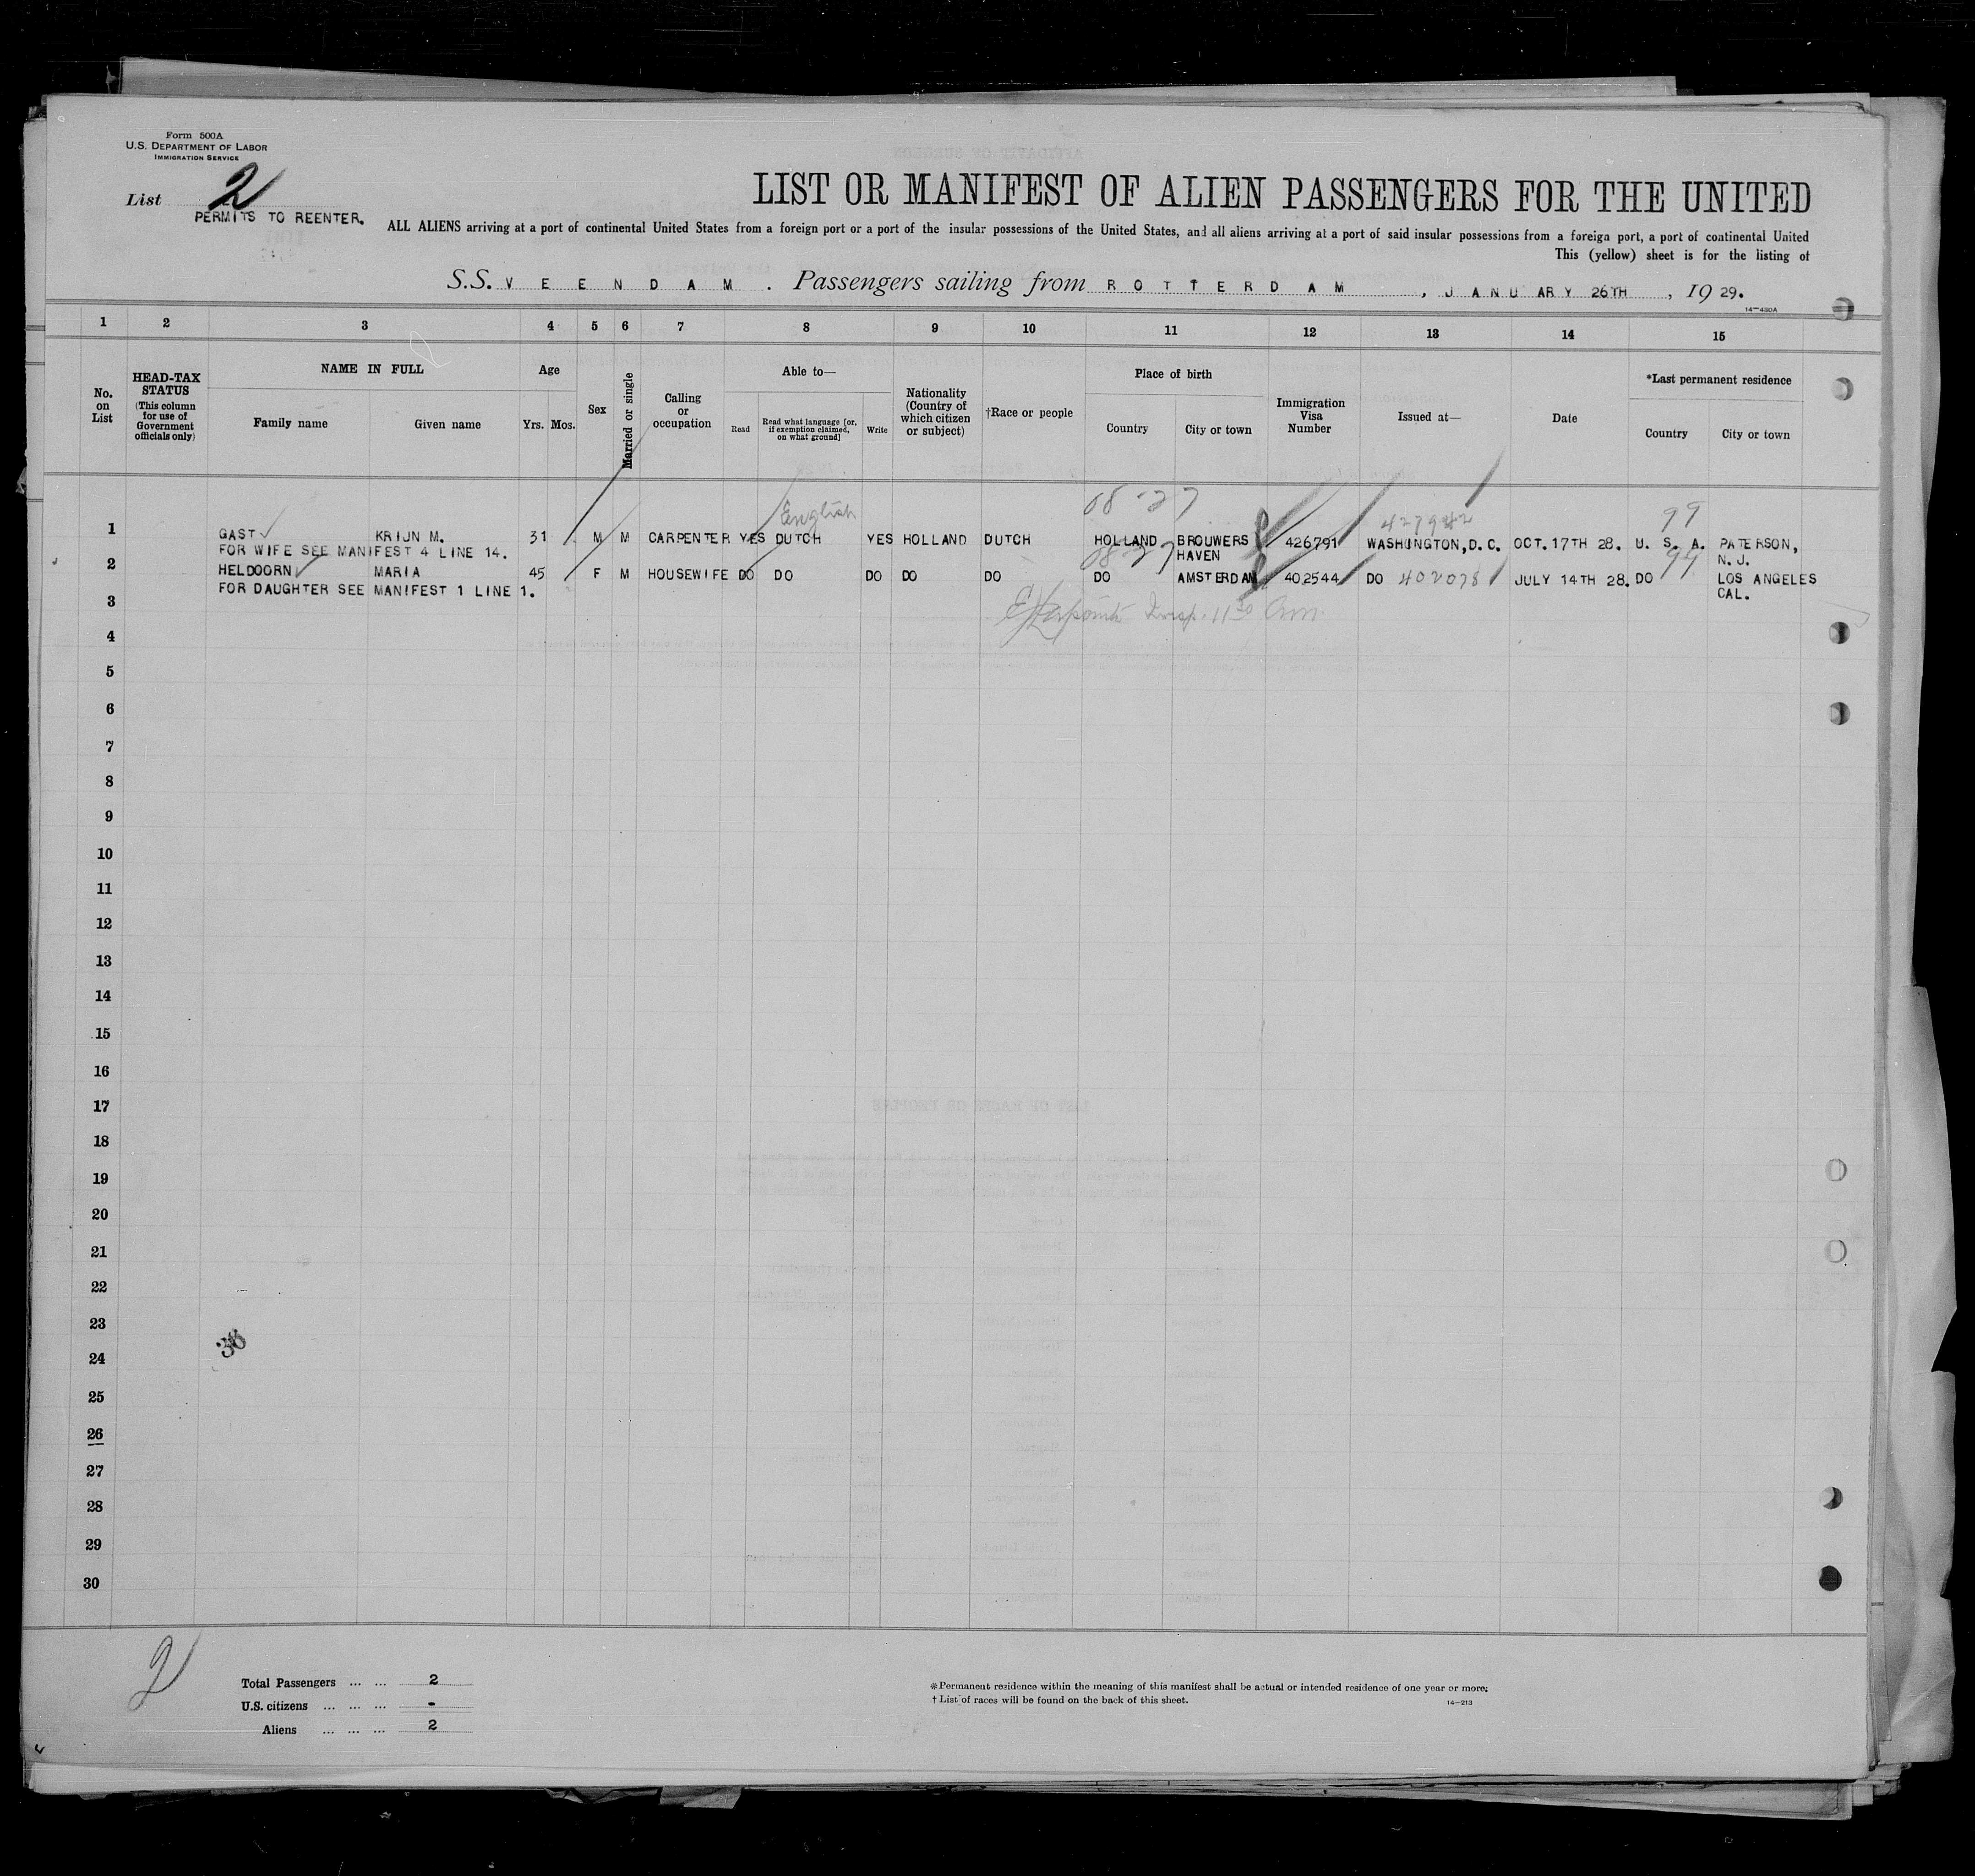 Form 500A
U.S. DEPARTMENT OF LABOR
IMMIGRATION SERVICE
List 2
PERMITS TO REENTER.
LIST OR MANIFEST OF ALIEN PASSENGERS FOR THE UNITED
ALL ALIENS arriving at a port of continental United States from a foreign port or a port of the insular possessions of the United States, and all aliens arriving at a port of said insular possessions from a foreign port, a port of continental United
This (yellow) sheet is for the listing of
S.S. VEENDAM. Passengers sailing from ROTTERDAM, JANUARY 26TH, 1929.
14-430A
1 2 3 4 5 6 7 8 9 10 11 12 13 14 15
No. on List
HEAD-TAX STATUS
(This column for use of Government officials only)
NAME IN FULL
Family name Given name
Age
Yrs. Mos.
Sex
Married or single
Calling or occupation
Able to—
Read
Read what language [or, if exemption claimed, on what ground]
Write
Nationality (Country of which citizen or subject)
†Race or people
Place of birth
Country City or town
Immigration Visa Number
Issued at—
Date
*Last permanent residence
Country City or town
08-27
English
99
1 GAST KRIJN M. 31 M M CARPENTER YES DUTCH YES HOLLAND DUTCH HOLLAND BROUWERS HAVEN 426791 WASHINGTON, D.C. OCT. 17TH 28. U. S. A. PATERSON, N. J.
FOR WIFE SEE MANIFEST 4 LINE 14.
08-27
99
2 HELDOORN MARIA 45 F M HOUSEWIFE DO DO DO DO DO DO AMSTERDAM 402544 DO 402078 JULY 14TH 28. DO LOS ANGELES CAL.
FOR DAUGHTER SEE MANIFEST 1 LINE 1.
3
4
5
6
7
8
9
10
11
12
13
14
15
16
17
18
19
20
21
22
23
24
25
26
27
28
29
30
2
Total Passengers ... ... 2
U.S. citizens ... ... ... -
Aliens ... ... ... 2
*Permanent residence within the meaning of this manifest shall be actual or intended residence of one year or more;
† List of races will be found on the back of this sheet.
14-213